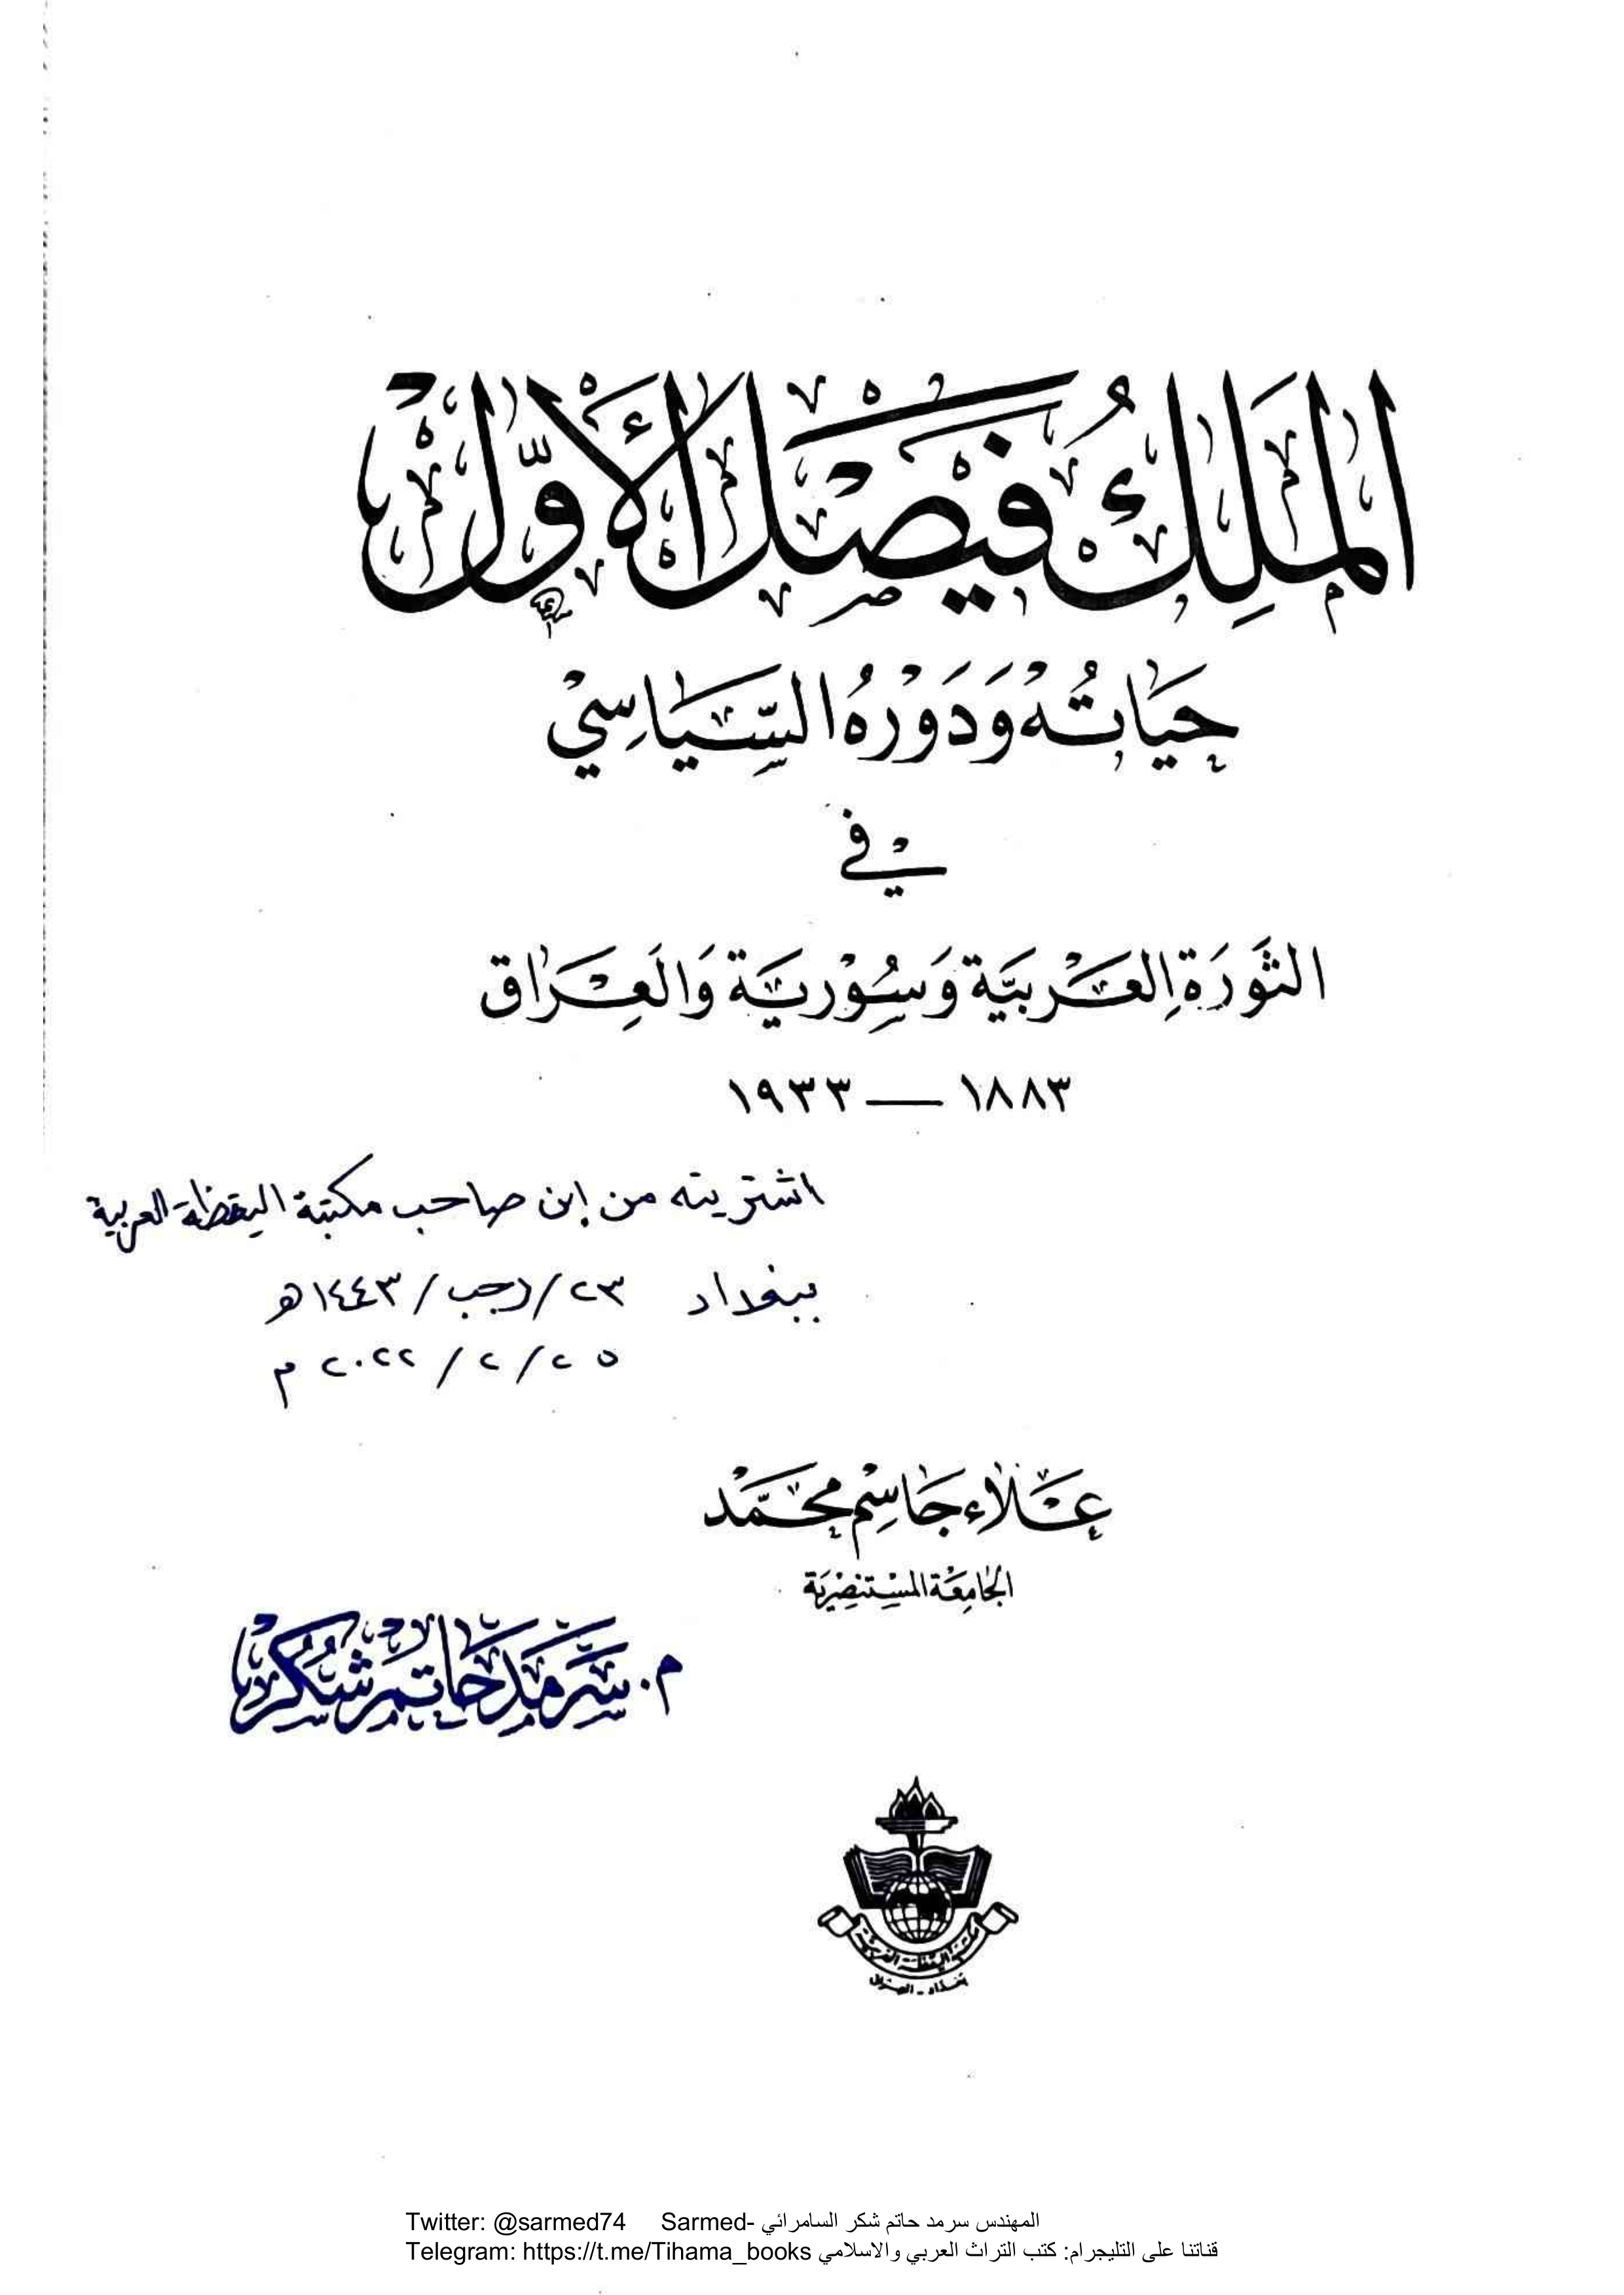 الملك فيصل الأول
حياته ودوره السياسي
في
الثورة العربية وسورية والعراق
١٨٨٣ — ١٩٣٣
اشتريته من ابن صاحب مكتبة اليقظة العربية
ببغداد ٢٣/رجب/١٤٤٣هـ
٢٥/٢/٢٠٢٢ م
علاء جاسم محمد
الجامعة المستنصرية
م. سرمد حاتم شكر
مكتبة اليقظة العربية
بغداد -
Twitter: @sarmed74 Sarmed- المهندس سرمد حاتم شكر السامرائي
Telegram: https://t.me/Tihama_books قناتنا على التليجرام: كتب التراث العربي والاسلامي